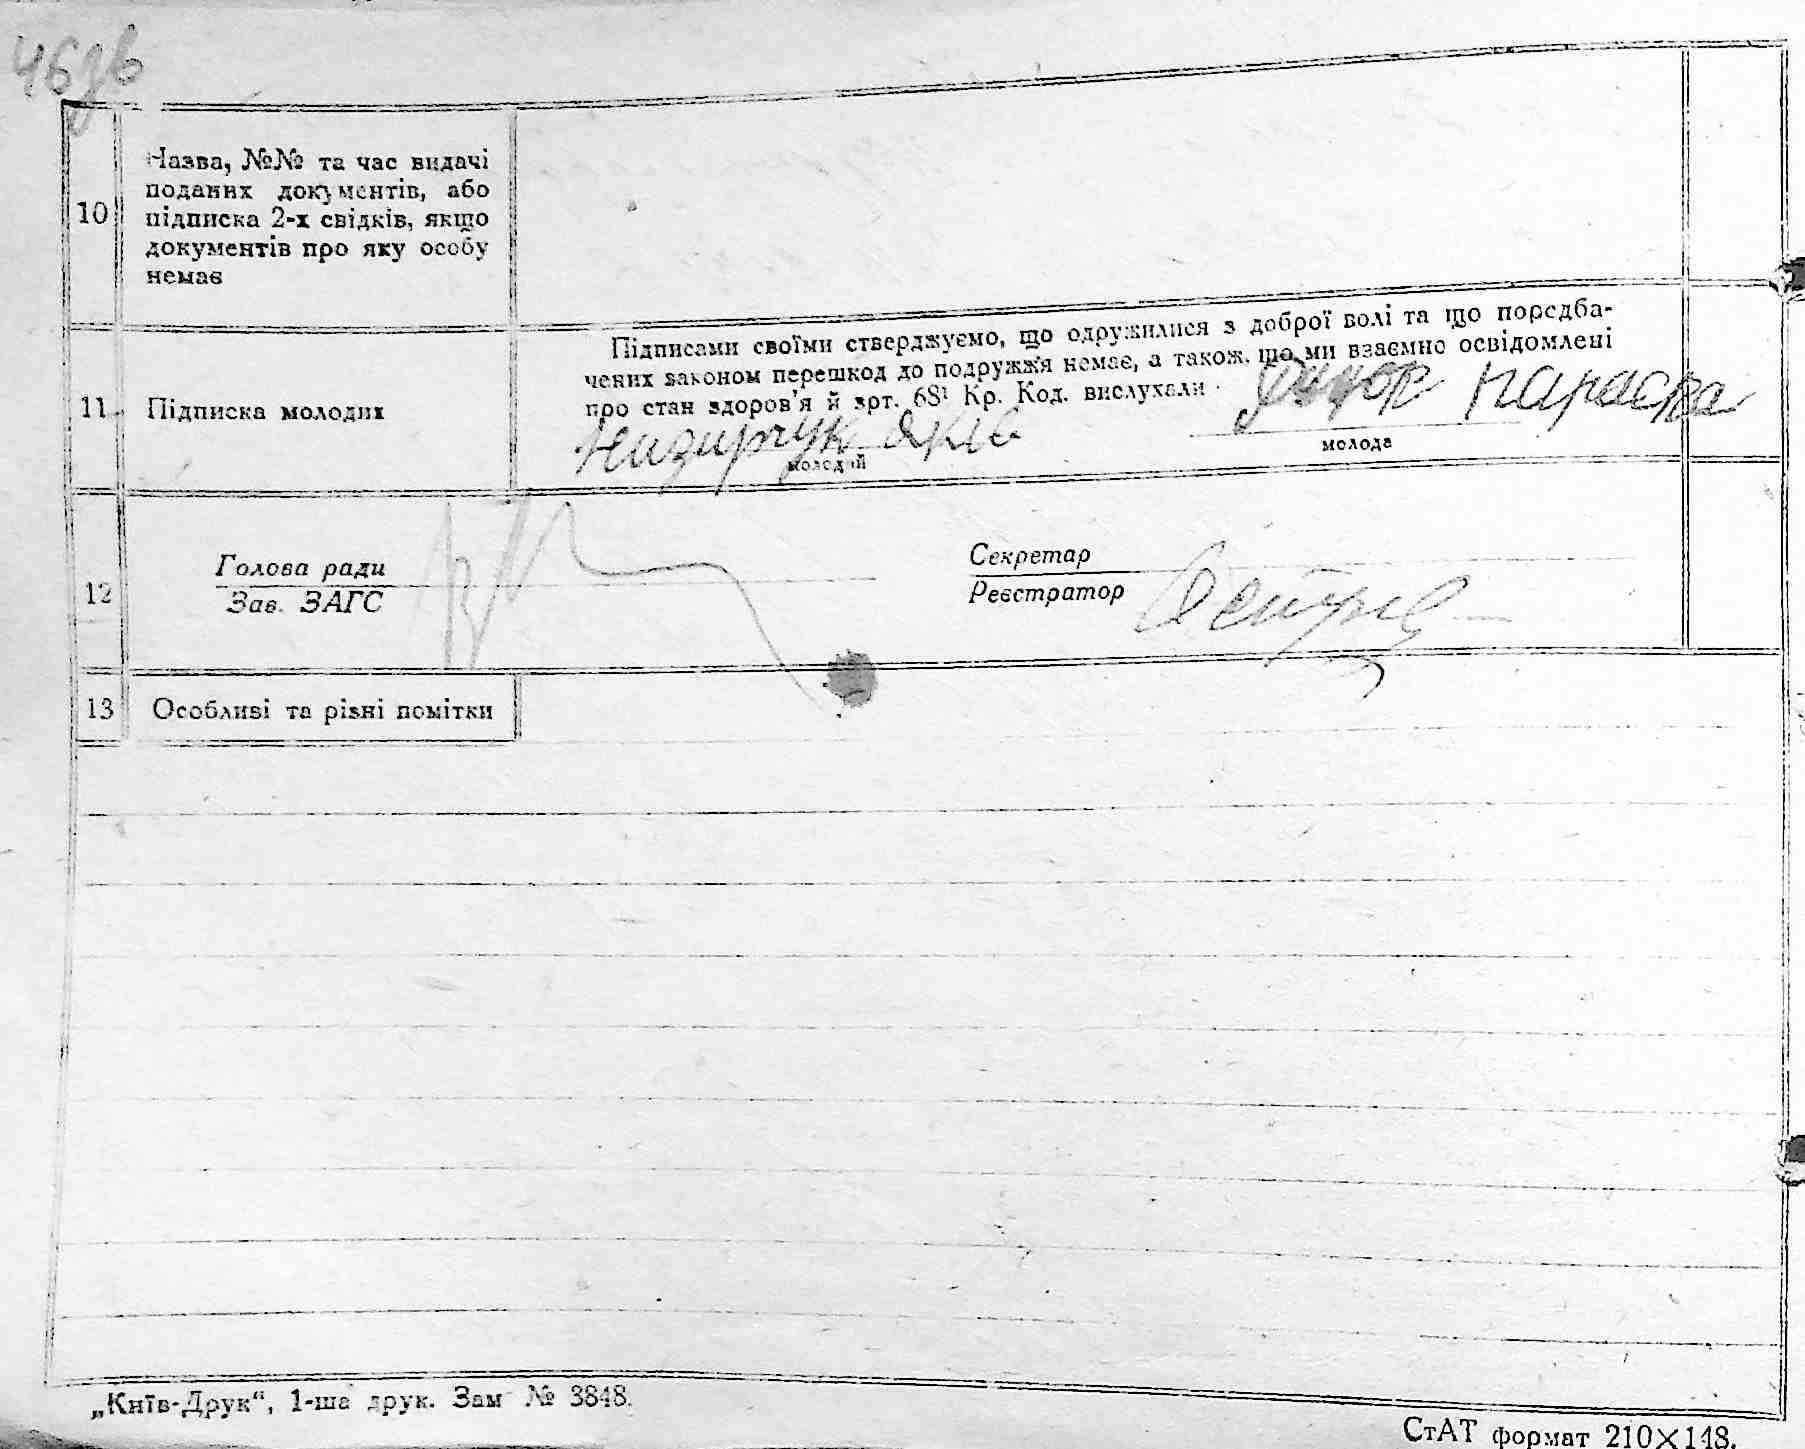 46зв
10
Назва, №№ та час видачі
поданих документів, або
підписка 2-х свідків, якщо
документів про яку особу
немає
11
Підписка молодих
Підписами своїми стверджуємо, що одружилися з доброї волі та що поредба-
чених законом перешкод до подружжя немає, а також, що ми взаємно освідомлені
про стан здоров'я й арт. 68¹ Кр. Код. вислухали
Параска
Яків
молодий
молода
12
Голова ради
Зав. ЗАГС
Секретар
Реєстратор
13
Особливі та різні помітки
„Київ-Друк“, 1-ша друк. Зам № 3848.
СтАТ формат 210×148.